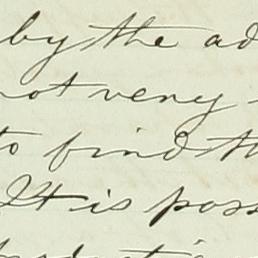 by the ad
not very
to find th
It is poss